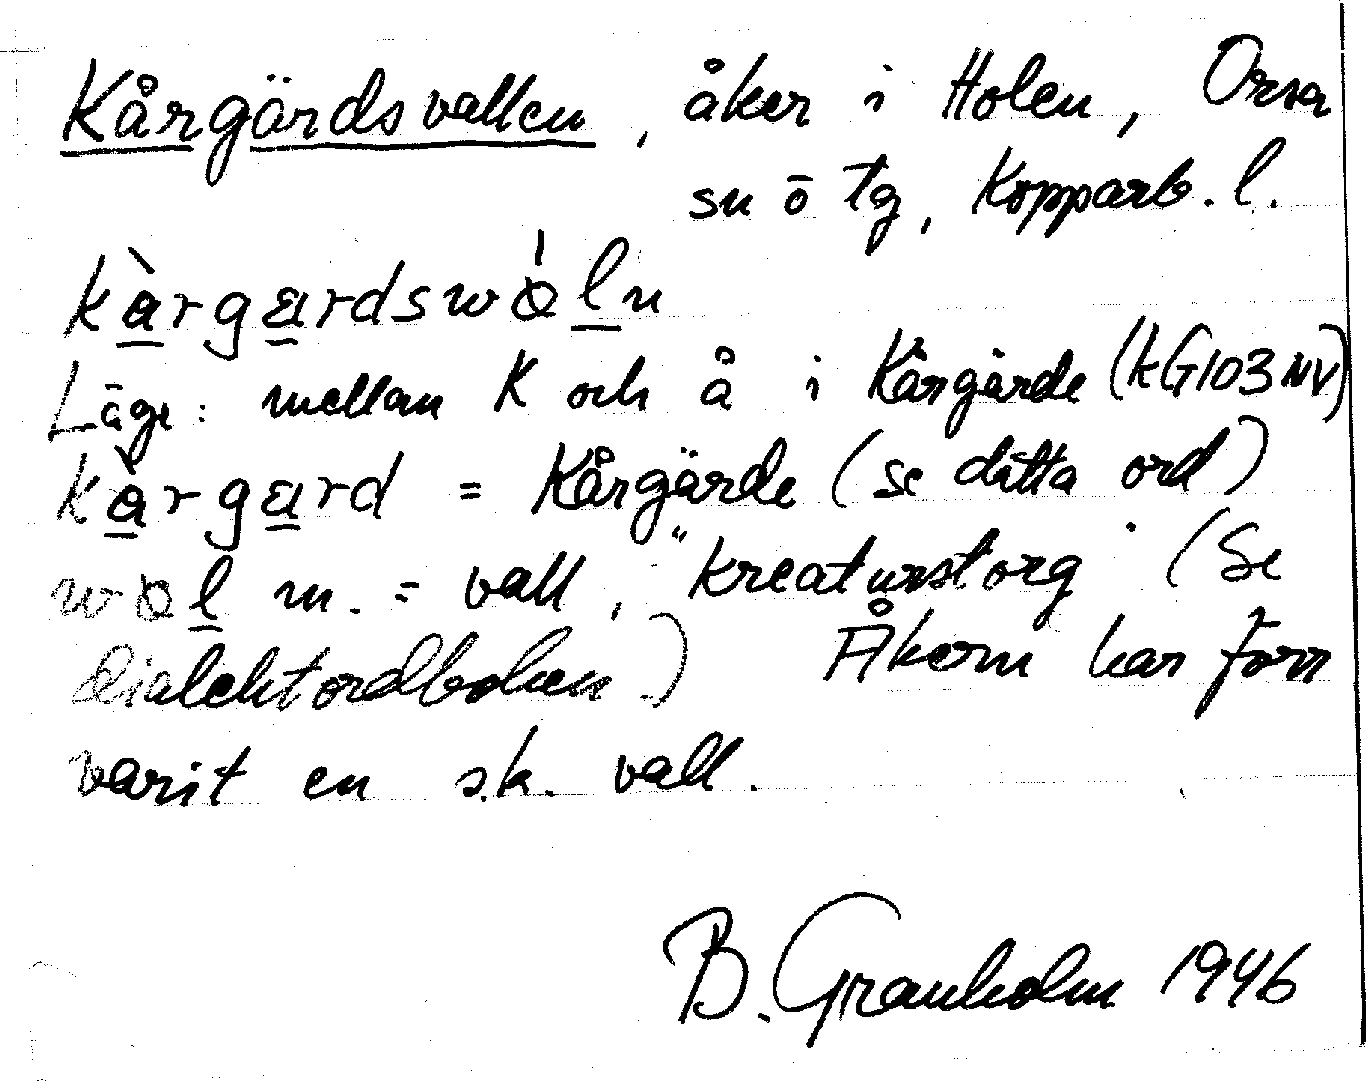 Kårgärdsvallen, åker i Holen, Orsa
sn ö tg, Kopparb. l.
kàrgardswo̍ln
Läge: mellan K och Å i Kårgärde (KG103NV)
kàrgard = Kårgärde (se detta ord)
wol m. = vall, "kreaturstorg" (Se
dialektordboken.) Åkern har förr
varit en s.k. vall.
B. Granholm 1946